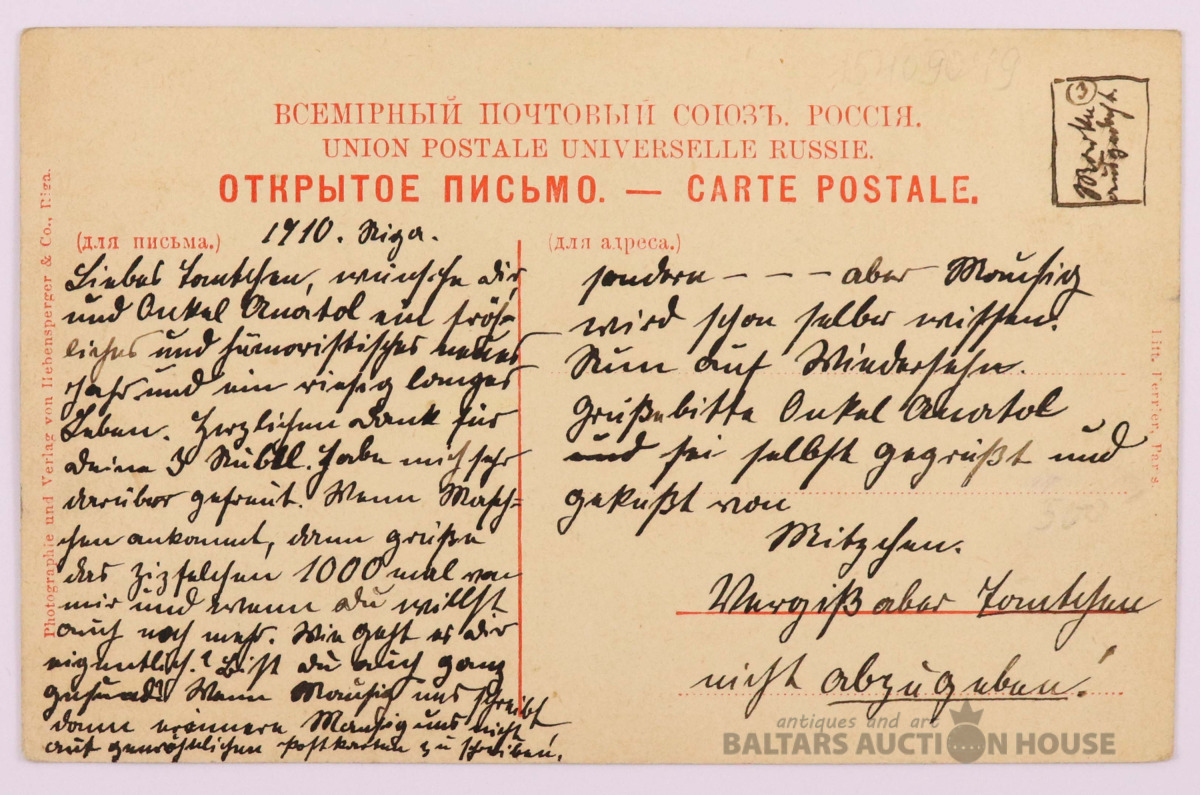 ВСЕМІРНЫЙ ПОЧТОВЫЙ СОЮЗЪ. РОССІЯ.
UNION POSTALE UNIVERSELLE RUSSIE.
ОТКРЫТОЕ ПИСЬМО. — CARTE POSTALE.
(для письма.)
1910. Riga.
Liebes Tantchen, wünsche Dir
und Onkel Anatol ein fröh-
liches und humoristisches neues
Jahr und ein riesig langes
Leben. Herzlichen Dank für
Deine 3 Rubel. Habe mich sehr
darüber gefreut. Wenn
ankommt, dann grüße
das Zipfelchen 1000 mal von
mir und wenn du willst
auch noch mehr. Wie geht es Dir
eigentlich? Bist Du auch ganz
gesund? Wenn Mausig uns schreibt
dann erinnere Mausig uns nicht
auf gewöhnlichen Postkarten zu schreiben,
(для адреса.)
sondern - - - aber Mausig
wird schon selber wissen.
Nun auf Wiedersehn.
Grüße bitte Onkel Anatol
und sei selbst gegrüßt und
geküßt von
Mitzchen.
Vergiß aber Tantchen
nicht abzugeben!
Marke
Photographie und Verlag von Hebensperger & Co., Riga.
antiques and art
BALTARS AUCTION HOUSE